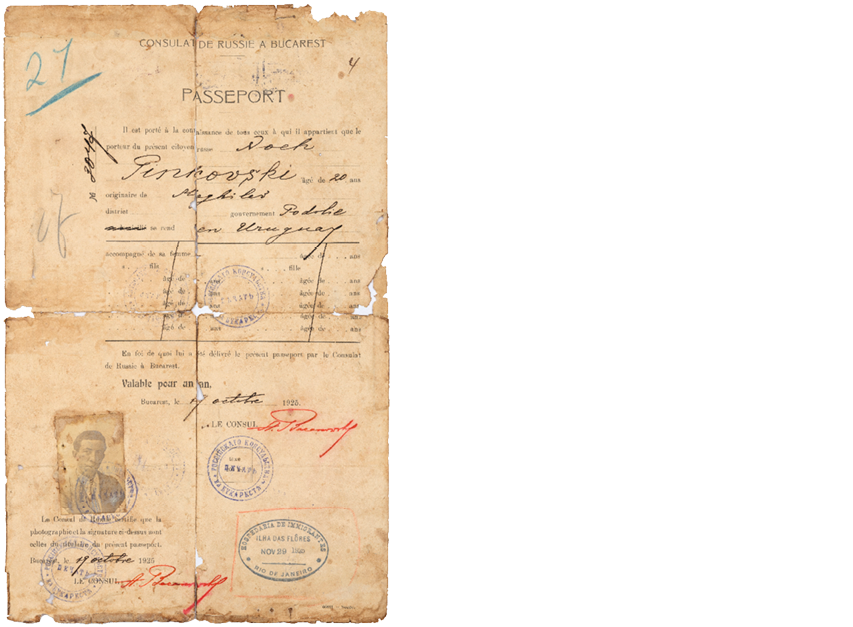 CONSULAT DE RUSSIE A BUCAREST
4
27
PASSEPORT
Il est porté à la connaissance de tous ceux à qui il appartient que le
porteur du présent citoyen russe
Pinkovski âgé de 20 ans
originaire de
district gouvernement Podolie
se rend en Uruguay
accompagné de sa femme âgée de ans
" " fils " " fille
âgé de ans âgée de ans
âgé de ans âgée de ans
âgé de ans âgée de ans
âgé de ans âgée de ans
âgé de ans âgée de ans
En foi de quoi lui a été délivré le présent passeport par le Consulat
de Russie à Bucarest.
Valable pour un an.
Bucarest, le octobre 1925.
LE CONSUL
Le Consul de Russie certifie que la
photographie et la signature ci-dessus sont
celles du titulaire du présent passeport.
Bucarest, le octobre 1925
LE CONSUL
HOSPEDARIA DE IMMIGRANTES
ILHA DAS FLÔRES
NOV 29
RIO DE JANEIRO